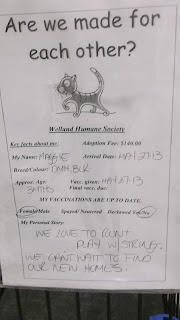 Are we made for
each other?
Welland Humane Society
Key facts about me: Adoption Fee: $140.00
My Name: MAGGIE Arrival Date: MAY 27-13
Breed/Colour: DMH BLK
Approx. Age: 3MTHS Vacc. given: MAY 27-13
Final vacc. due:
MY VACCINATIONS ARE UP TO DATE.
Female/Male Spayed/ Neutered Declawed Yes/No
My Personal Story:
WE LOVE TO RUN &
PLAY W/ STRING.
WE CAN'T WAIT TO FIND
OUR NEW HOMES.